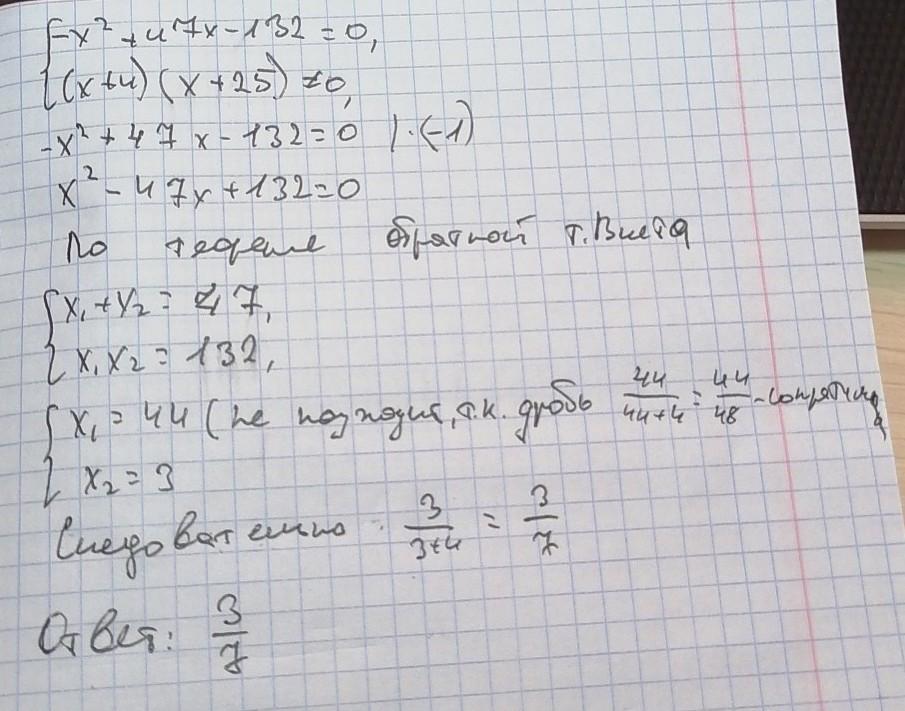 { -x² + 47x - 132 = 0,
(x+4) (x+25) ≠ 0,
-x² + 47x - 132 = 0 | · (-1)
x² - 47x + 132 = 0
По теореме обратной т. Виета
{ x₁ + x₂ = 47,
x₁ x₂ = 132,
{ x₁ = 44 (не подходит, т.к. дробь 44/44+4 = 44/48 - сократима
x₂ = 3
Следовательно 3/3+4 = 3/7
Ответ: 3/7